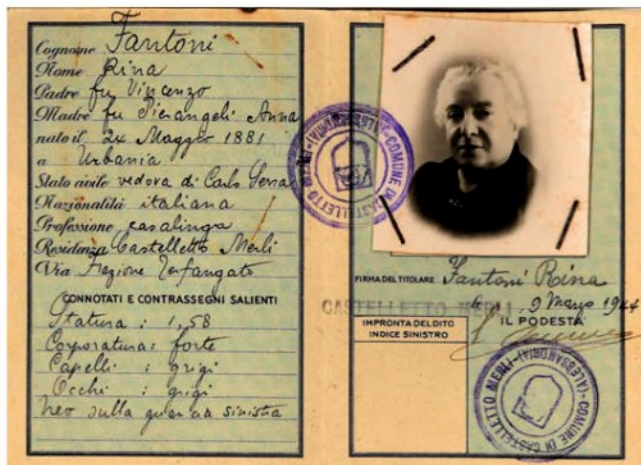 Cognome Fantoni
Nome Rina
Padre fu Vincenzo
Madre fu Pierangeli Anna
nato il 24 Maggio 1881
a Urbania
Stato civile vedova di Carlo Serra
Nazionalità italiana
Professione casalinga
Residenza Castelletto Merli
Via Frezione Terfangato
CONNOTATI E CONTRASSEGNI SALIENTI
Statura : 1,58
Corporatura: forte
Capelli : grigi
Occhi : grigi
Neo sulla guancia sinistra
COMUNE DI CASTELLETTO MERLI (ALESSANDRIA)
FIRMA DEL TITOLARE Fantoni Rina
CASTELLETTO MERLI, 9 Marzo 1944
IMPRONTA DEL DITO
INDICE SINISTRO
IL PODESTÀ
COMUNE DI CASTELLETTO MERLI (ALESSANDRIA)